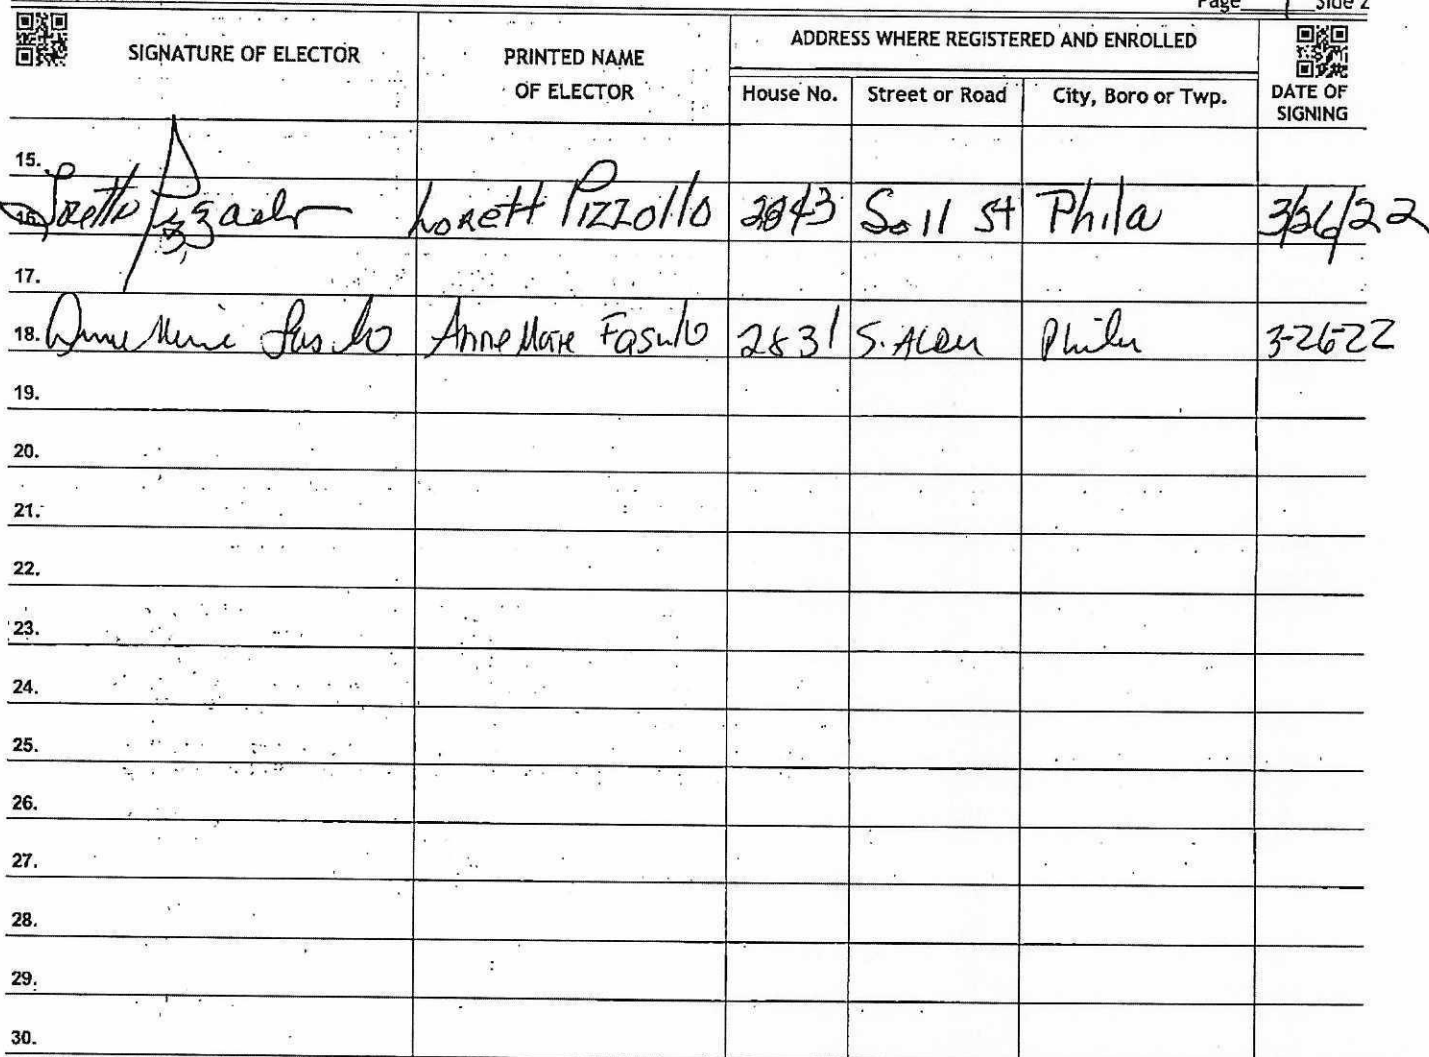 Page 1 Side 2
SIGNATURE OF ELECTOR
PRINTED NAME
OF ELECTOR
ADDRESS WHERE REGISTERED AND ENROLLED
House No. Street or Road City, Boro or Twp.
DATE OF
SIGNING
15.
16. Lorett Pizzollo 2843 So 11 St Phila 3/26/22
17.
18. Anne Marie Fasulo Anne Marie Fasulo 2831 S. Phila 3-26-22
19.
20.
21.
22.
23.
24.
25.
26.
27.
28.
29.
30.